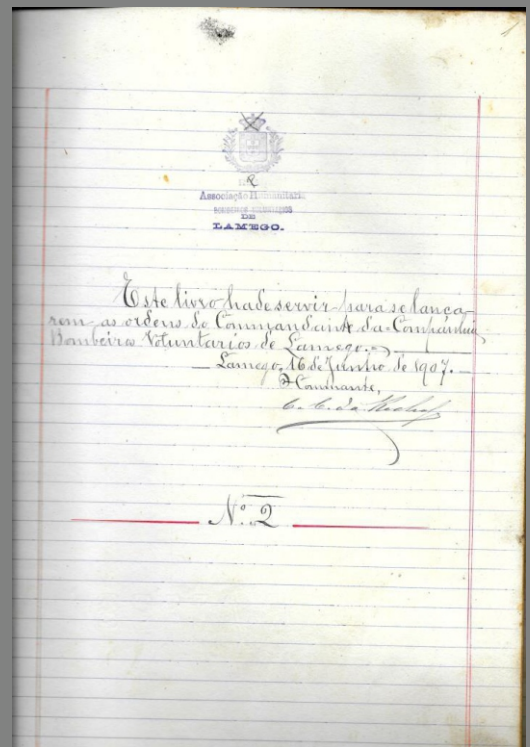 1
Associação Humanitaria
DOS
LAMEGO.
Este livro hade servir para se lança
rem as ordens do Commandante da Companhia
Bombeiros Voluntarios de Lamego.
Lamego, 16 de Junho de 1907.
O Commante,
N.º 2